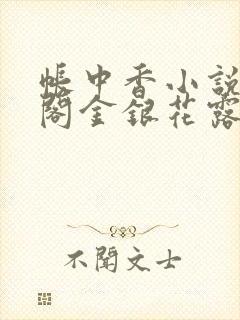 帳中香小說
閣金銀花露
不聞文士